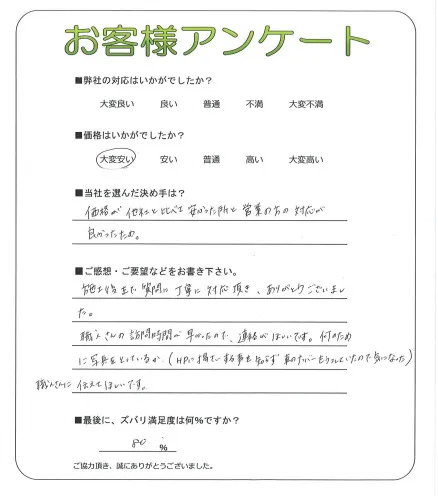 お客様アンケート
■弊社の対応はいかがでしたか？
大変良い 良い 普通 不満 大変不満
■価格はいかがでしたか？
大変安い 安い 普通 高い 大変高い
■当社を選んだ決め手は？
価格が他社と比べて安かった所と営業の方の対応が
良かったため。
■ご感想・ご要望などをお書き下さい。
施工後まで質問に丁寧に対応頂き、ありがとうございまし
た。
職人さんの訪問時間が早かったので、連絡がほしいです。何のため
に写真をとっているか（HPに掲載する事も知らず 車のナンバーもうつしていたので気になった）
職人さんに伝えてほしいです。
■最後に、ズバリ満足度は何%ですか？
80 %
ご協力頂き、誠にありがとうございました。